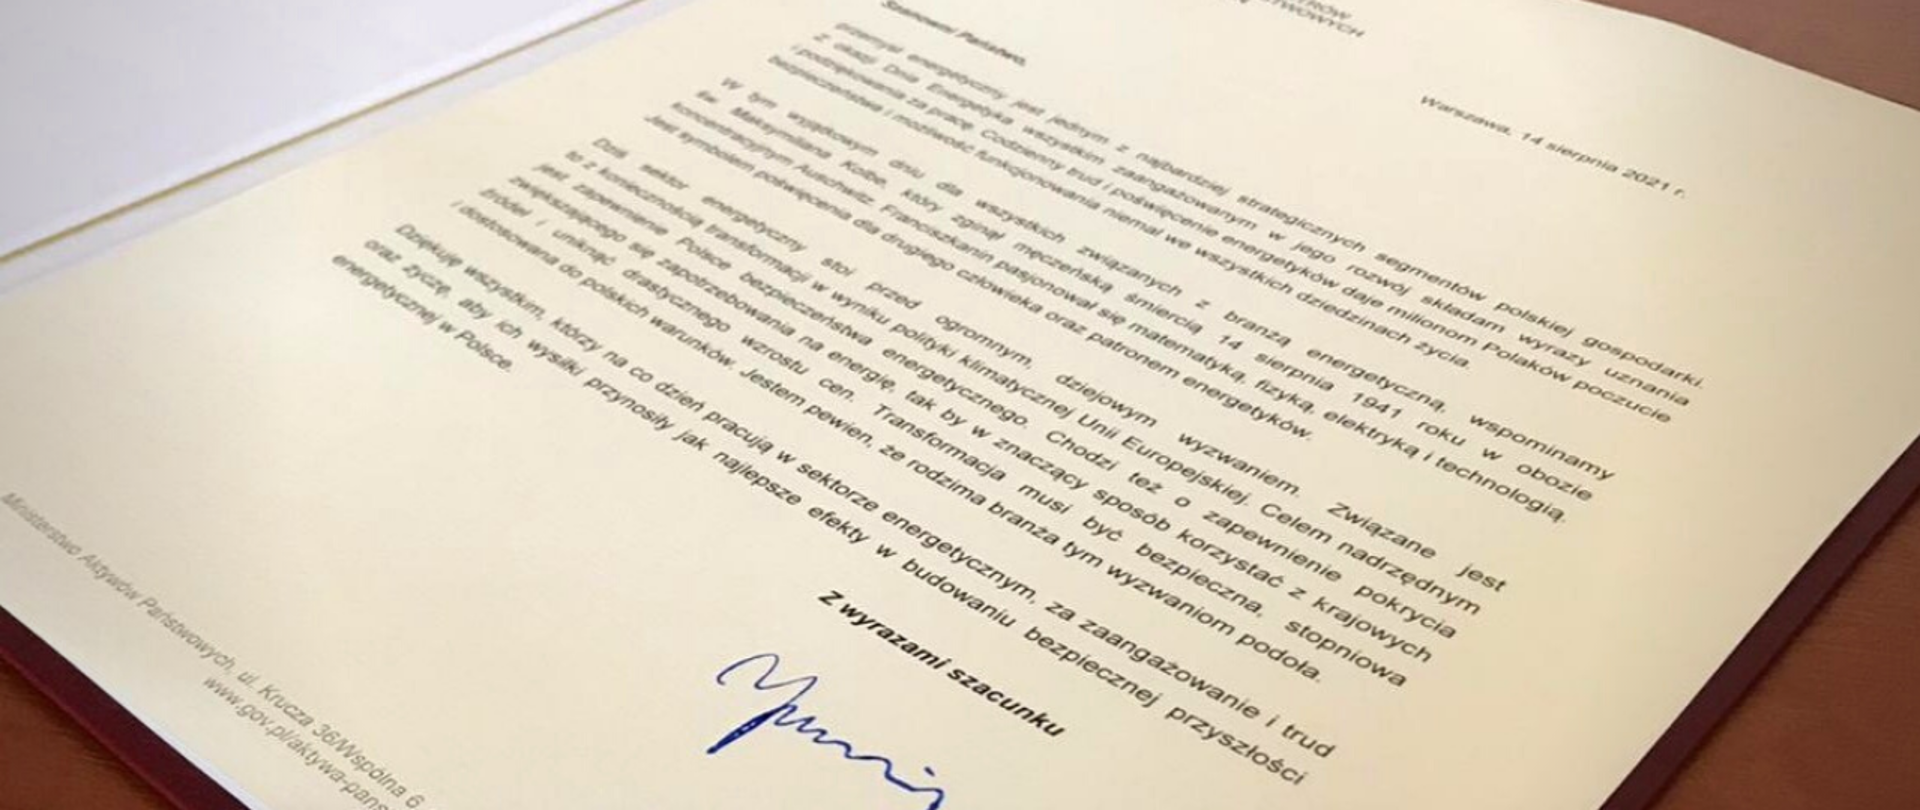 TRÓW
STWOWYCH
Warszawa, 14 sierpnia 2021 r.
Szanowni Państwo,
przemysł energetyczny jest jednym z najbardziej strategicznych segmentów polskiej gospodarki.
Z okazji Dnia Energetyka wszystkim zaangażowanym w jego rozwój składam wyrazy uznania
i podziękowania za pracę. Codzienny trud i poświęcenie energetyków daje milionom Polaków poczucie
bezpieczeństwa i możliwość funkcjonowania niemal we wszystkich dziedzinach życia.
W tym wyjątkowym dniu dla wszystkich związanych z branżą energetyczną, wspominamy
św. Maksymiliana Kolbe, który zginął męczeńską śmiercią 14 sierpnia 1941 roku w obozie
koncentracyjnym Auschwitz. Franciszkanin pasjonował się matematyką, fizyką, elektryką i technologią.
Jest symbolem poświęcenia dla drugiego człowieka oraz patronem energetyków.
Dziś sektor energetyczny stoi przed ogromnym, dziejowym wyzwaniem. Związane jest
to z koniecznością transformacji w wyniku polityki klimatycznej Unii Europejskiej. Celem nadrzędnym
jest zapewnienie Polsce bezpieczeństwa energetycznego. Chodzi też o zapewnienie pokrycia
zwiększającego się zapotrzebowania na energię, tak by w znaczący sposób korzystać z krajowych
źródeł i uniknąć drastycznego wzrostu cen. Transformacja musi być bezpieczna, stopniowa
i dostosowana do polskich warunków. Jestem pewien, że rodzima branża tym wyzwaniom podoła.
Dziękuję wszystkim, którzy na co dzień pracują w sektorze energetycznym, za zaangażowanie i trud
oraz życzę, aby ich wysiłki przynosiły jak najlepsze efekty w budowaniu bezpiecznej przyszłości
energetycznej w Polsce.
Z wyrazami szacunku
Ministerstwo Aktywów Państwowych, ul. Krucza 36/Wspólna 6
www.gov.pl/aktywa-pans